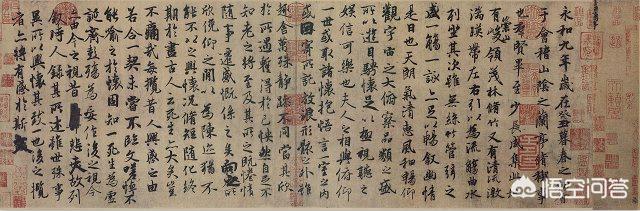 永和九年歲在癸丑暮春之初會
于會稽山陰之蘭亭脩禊事
也群賢畢至少長咸集此地
有崇山峻領茂林脩竹又有清流激
湍暎帶左右引以為流觴曲水
列坐其次雖無絲竹管弦之
盛一觴一詠亦足以暢敘幽情
是日也天朗氣清惠風和暢仰
觀宇宙之大俯察品類之盛
所以遊目騁懷足以極視聽之
娛信可樂也夫人之相與俯仰
一世或取諸懷抱悟言一室之內
或因寄所託放浪形骸之外雖
趣舍萬殊靜躁不同當其欣
於所遇蹔得於己怏然自足不
知老之將至及其所之既惓情
隨事遷感慨係之矣向之所
欣俛仰之間以為陳迹猶不
能不以之興懷況脩短隨化終
期於盡古人云死生亦大矣豈
不痛哉每攬昔人興感之由
若合一契未嘗不臨文嗟悼不
能喻之於懷固知一死生為虛
誕齊彭殤為妄作後之視今
亦由今之視昔悲夫故列
敘時人錄其所述雖世殊事
異所以興懷其致一也後之攬
者亦將有感於斯文
悟空问答